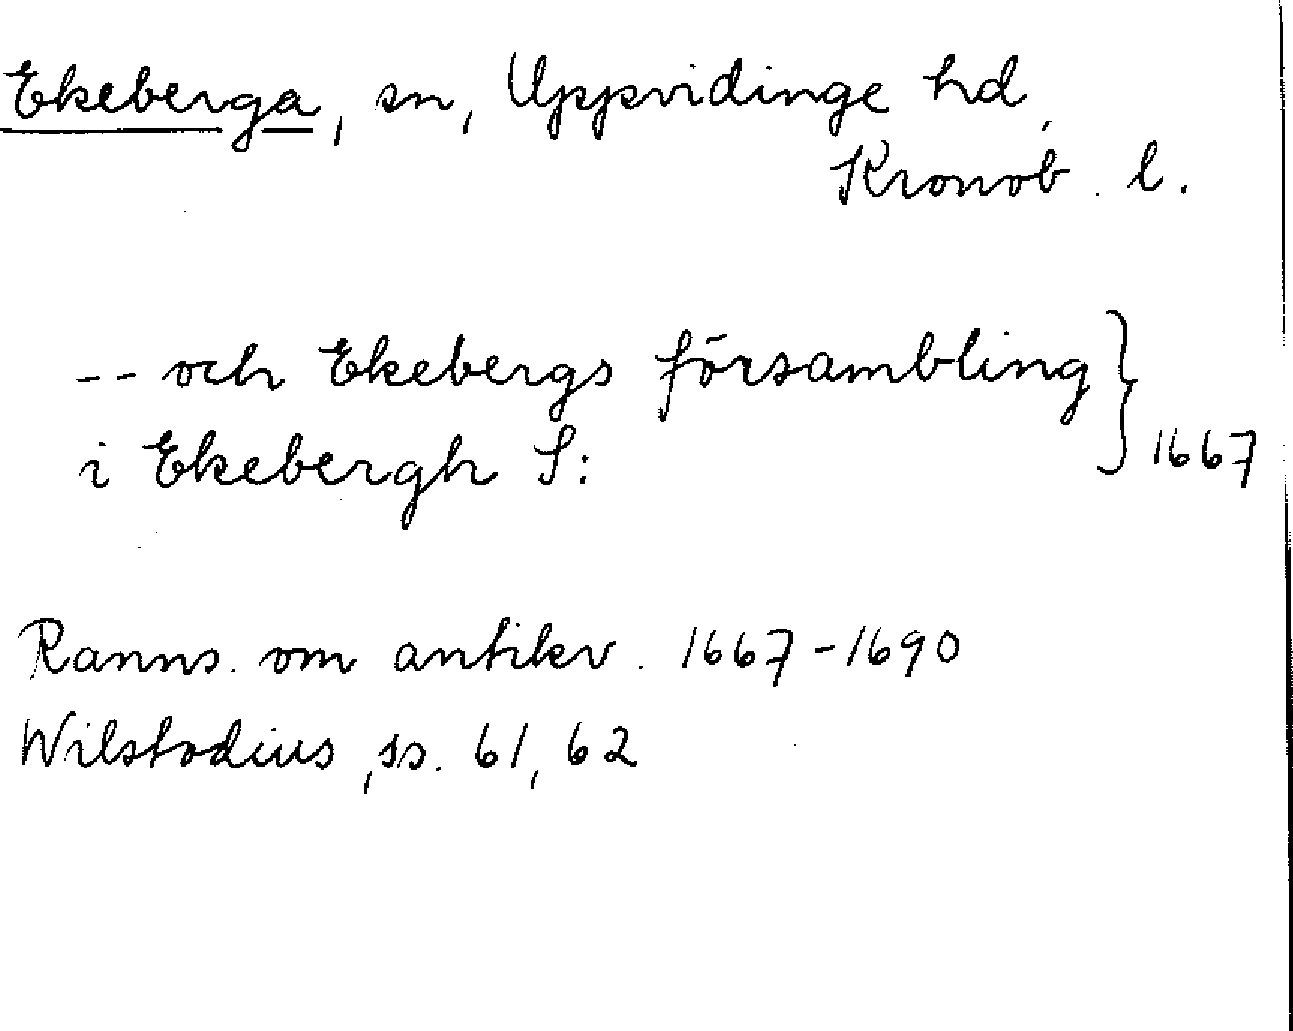 Ekeberga, sn, Uppvidinge hd,
Kronob. l.
-- och Ekebergs försambling } 1667
i Ekebergh S:
Ranns. om antikv. 1667-1690
Wilstadius, ss. 61, 62